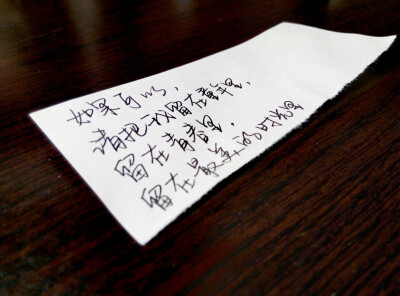 如果可以，
请把我留在童年里，
留在青春里，
留在最美的时光里